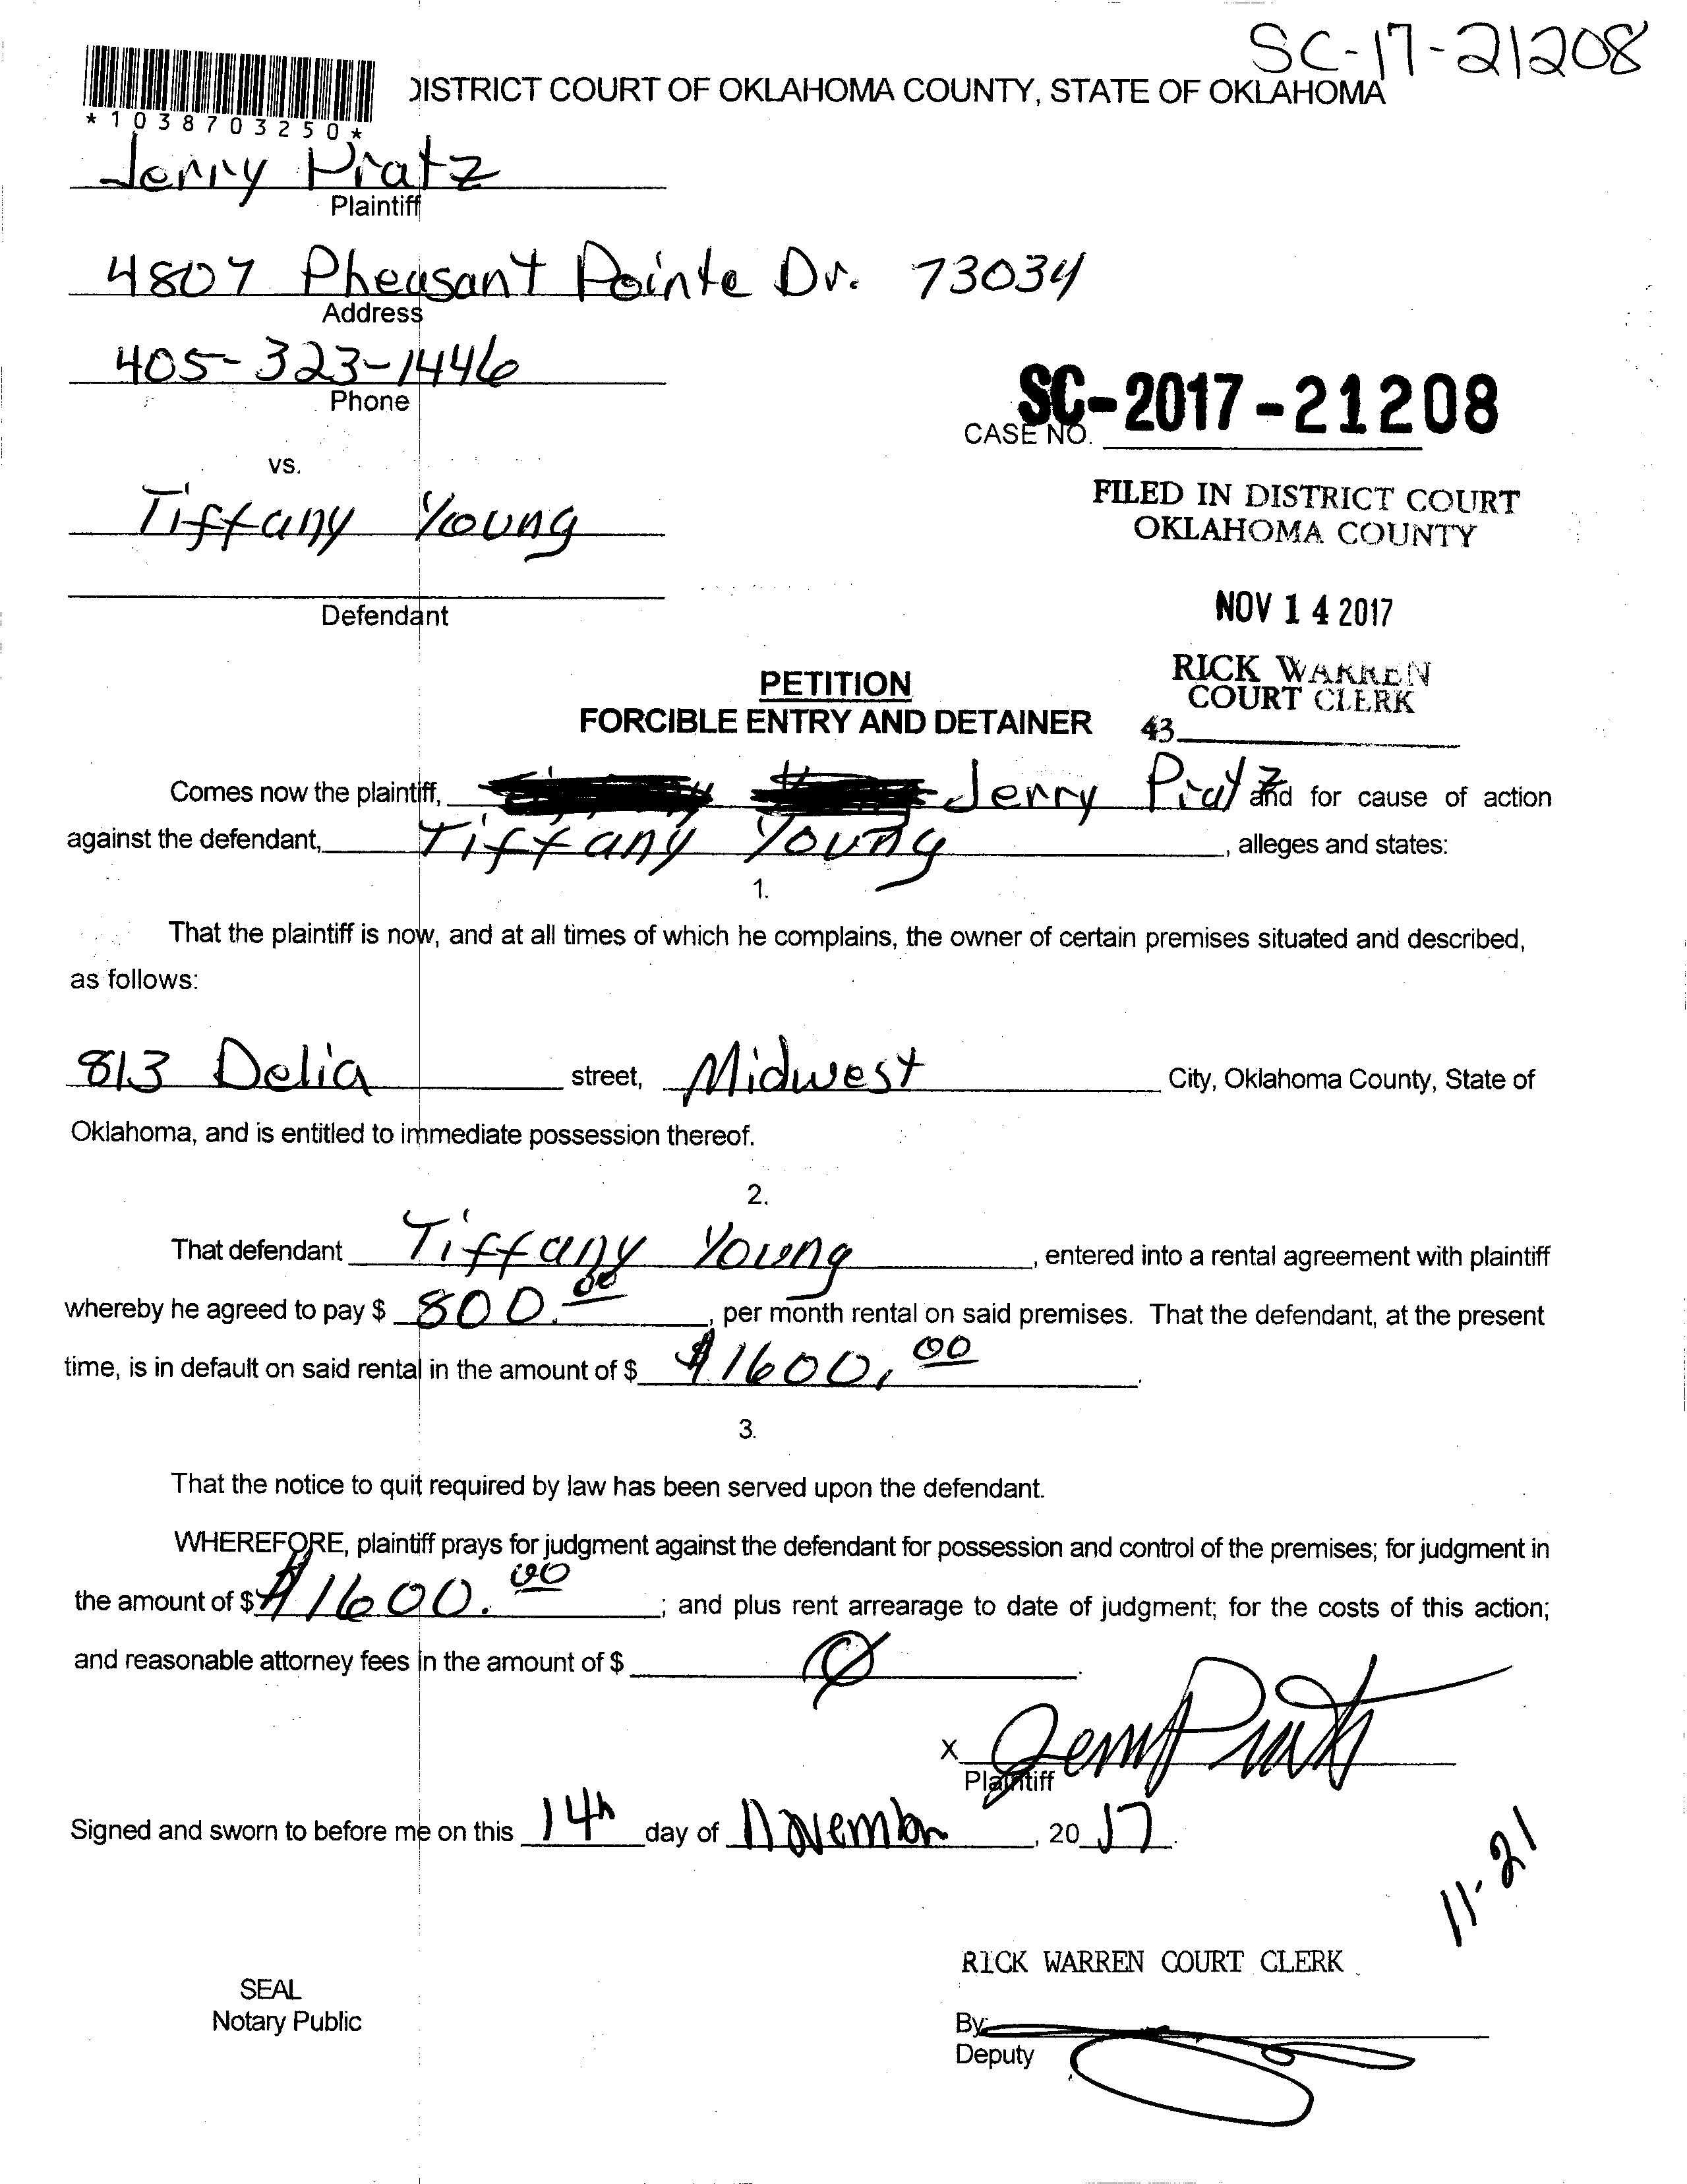 SC-17-21208
DISTRICT COURT OF OKLAHOMA COUNTY, STATE OF OKLAHOMA
*1038703250*
Jerry Pratz
Plaintiff
4807 Pheasant Pointe Dr. 73034
Address
405-323-1446
Phone
SC-2017-21208
CASE NO.
vs.
Tiffany Young
FILED IN DISTRICT COURT
OKLAHOMA COUNTY
Defendant
NOV 14 2017
RICK WARREN
COURT CLERK
43
PETITION
FORCIBLE ENTRY AND DETAINER
Comes now the plaintiff, Jerry Pratz and for cause of action
against the defendant, Tiffany Young, alleges and states:
1.
That the plaintiff is now, and at all times of which he complains, the owner of certain premises situated and described,
as follows:
813 Delia street, Midwest City, Oklahoma County, State of
Oklahoma, and is entitled to immediate possession thereof.
2.
That defendant Tiffany Young, entered into a rental agreement with plaintiff
whereby he agreed to pay $ 800.00, per month rental on said premises. That the defendant, at the present
time, is in default on said rental in the amount of $ $1600.00.
3.
That the notice to quit required by law has been served upon the defendant.
WHEREFORE, plaintiff prays for judgment against the defendant for possession and control of the premises; for judgment in
the amount of $ $1600.00; and plus rent arrearage to date of judgment; for the costs of this action;
and reasonable attorney fees in the amount of $ Ø.
X Jerry Pratz
Plaintiff
Signed and sworn to before me on this 14th day of November, 2017.
11-21
RICK WARREN COURT CLERK
SEAL
Notary Public
By
Deputy